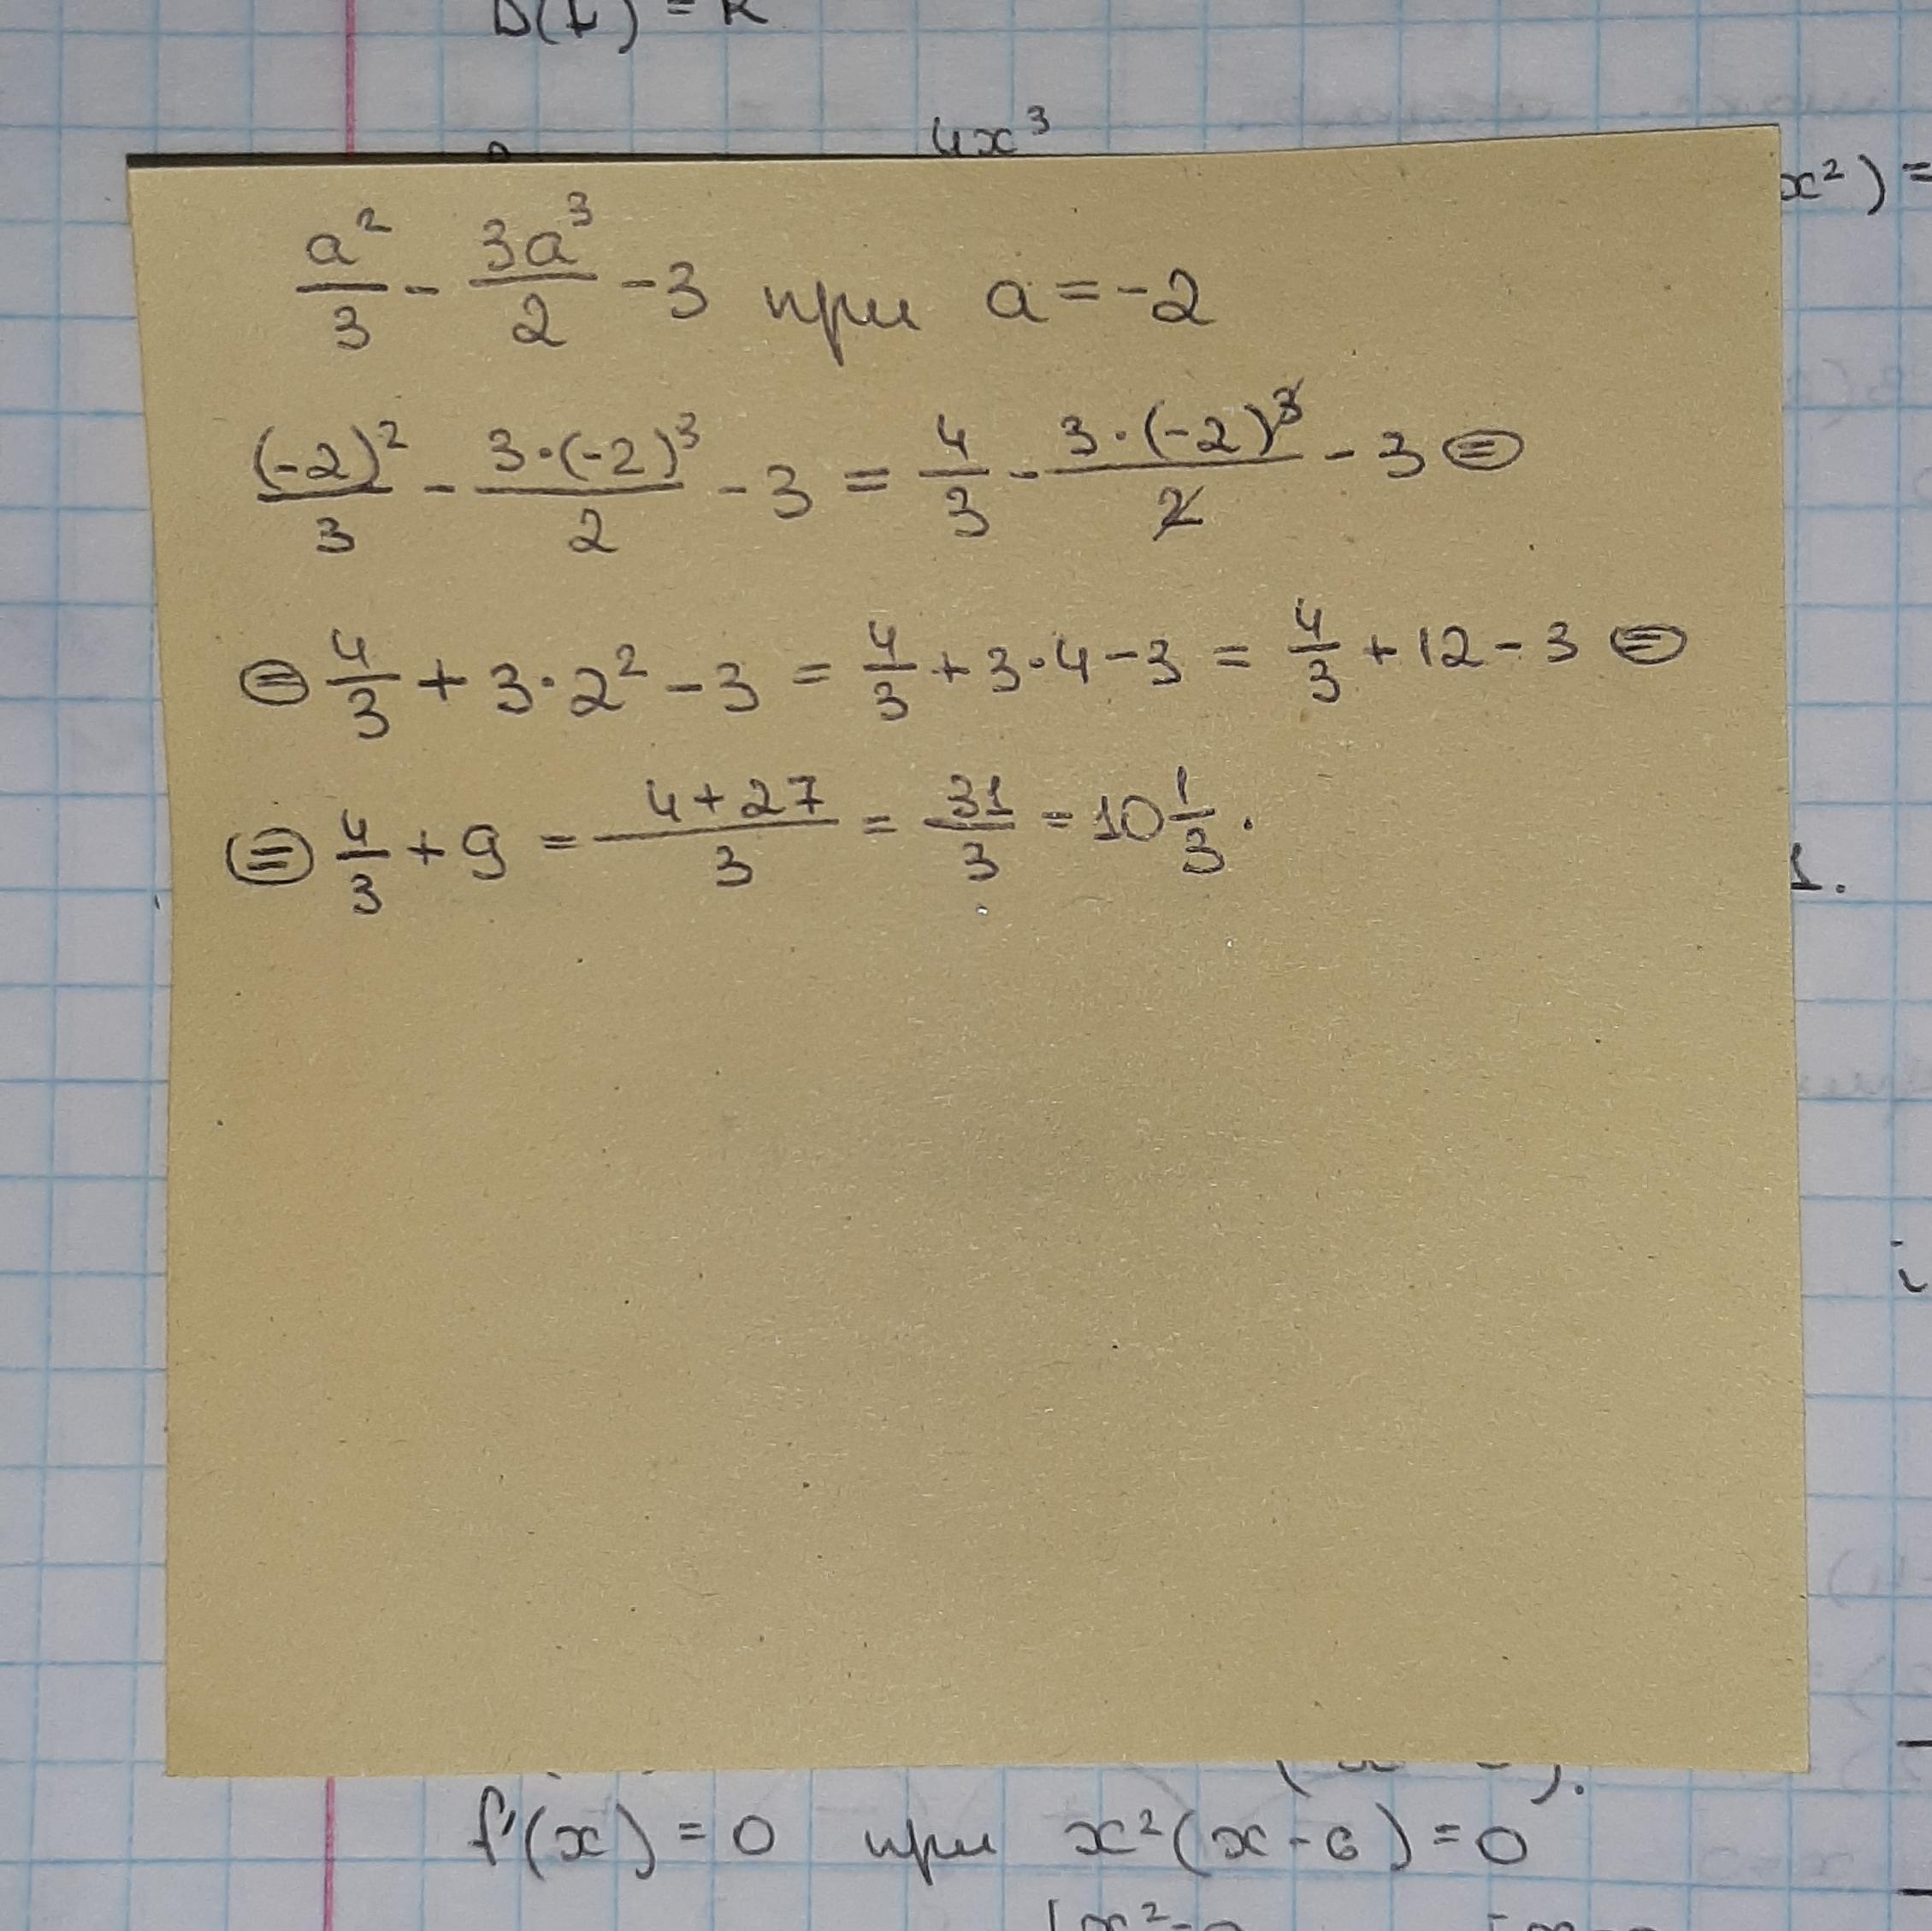 D(f) = R
4x³
x²) =
a²/3 - 3a³/2 - 3 при a = -2
(-2)²/3 - 3·(-2)³/2 - 3 = 4/3 - 3·(-2)³/2 - 3 =
= 4/3 + 3·2² - 3 = 4/3 + 3·4 - 3 = 4/3 + 12 - 3 =
= 4/3 + 9 = 4+27/3 = 31/3 = 10 1/3.
1.
f'(x) = 0 при x²(x-6) = 0